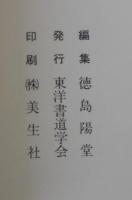 編集 徳島陽堂
発行 東洋書道学会
印刷 ㈱美生社